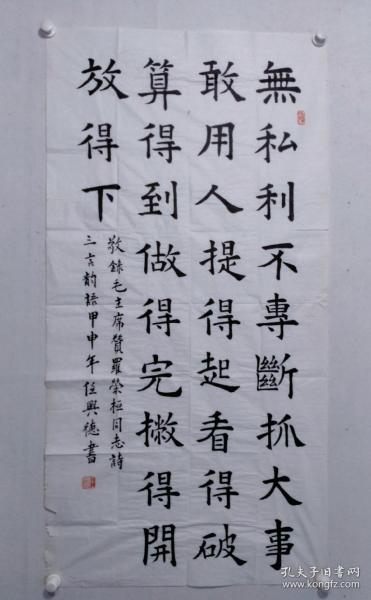 無私利不專斷抓大事
敢用人提得起看得破
算得到做得完撇得開
放得下
敬録毛主席贊羅榮桓同志詩
三言韵語甲申年任興德書
孔夫子旧书网